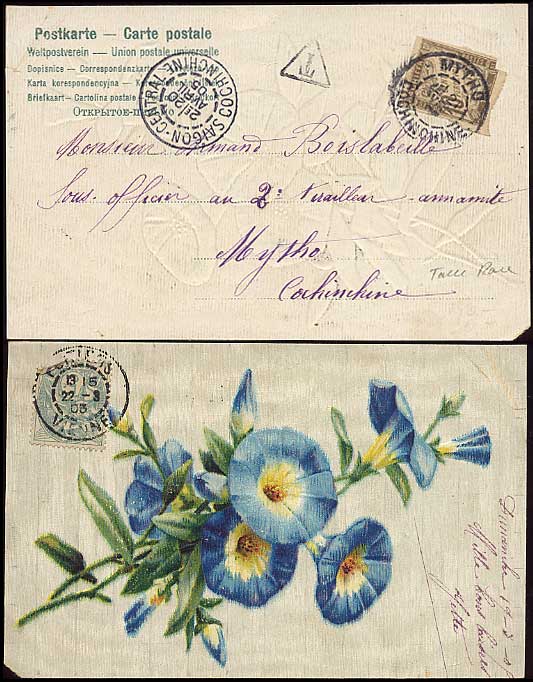 Postkarte — Carte postale
Weltpostverein — Union postale universelle
Dopisnice — Correspondenzkarte
Karta korespondencyjna — Kar
Briefkaart — Cartolina postale
ОТКРЫТОЕ
SAIGON-CENTRAL
COCHINCHINE
T
MYTHO
COCHINCHINE
Monsieur Armand Boislabeille
Sous-officier au 2e Tirailleur annamite
Mytho
Cochinchine
Taxe Rare
13 15
22 - 3
03
VIENNE
Dimanche
Mille bons baisers